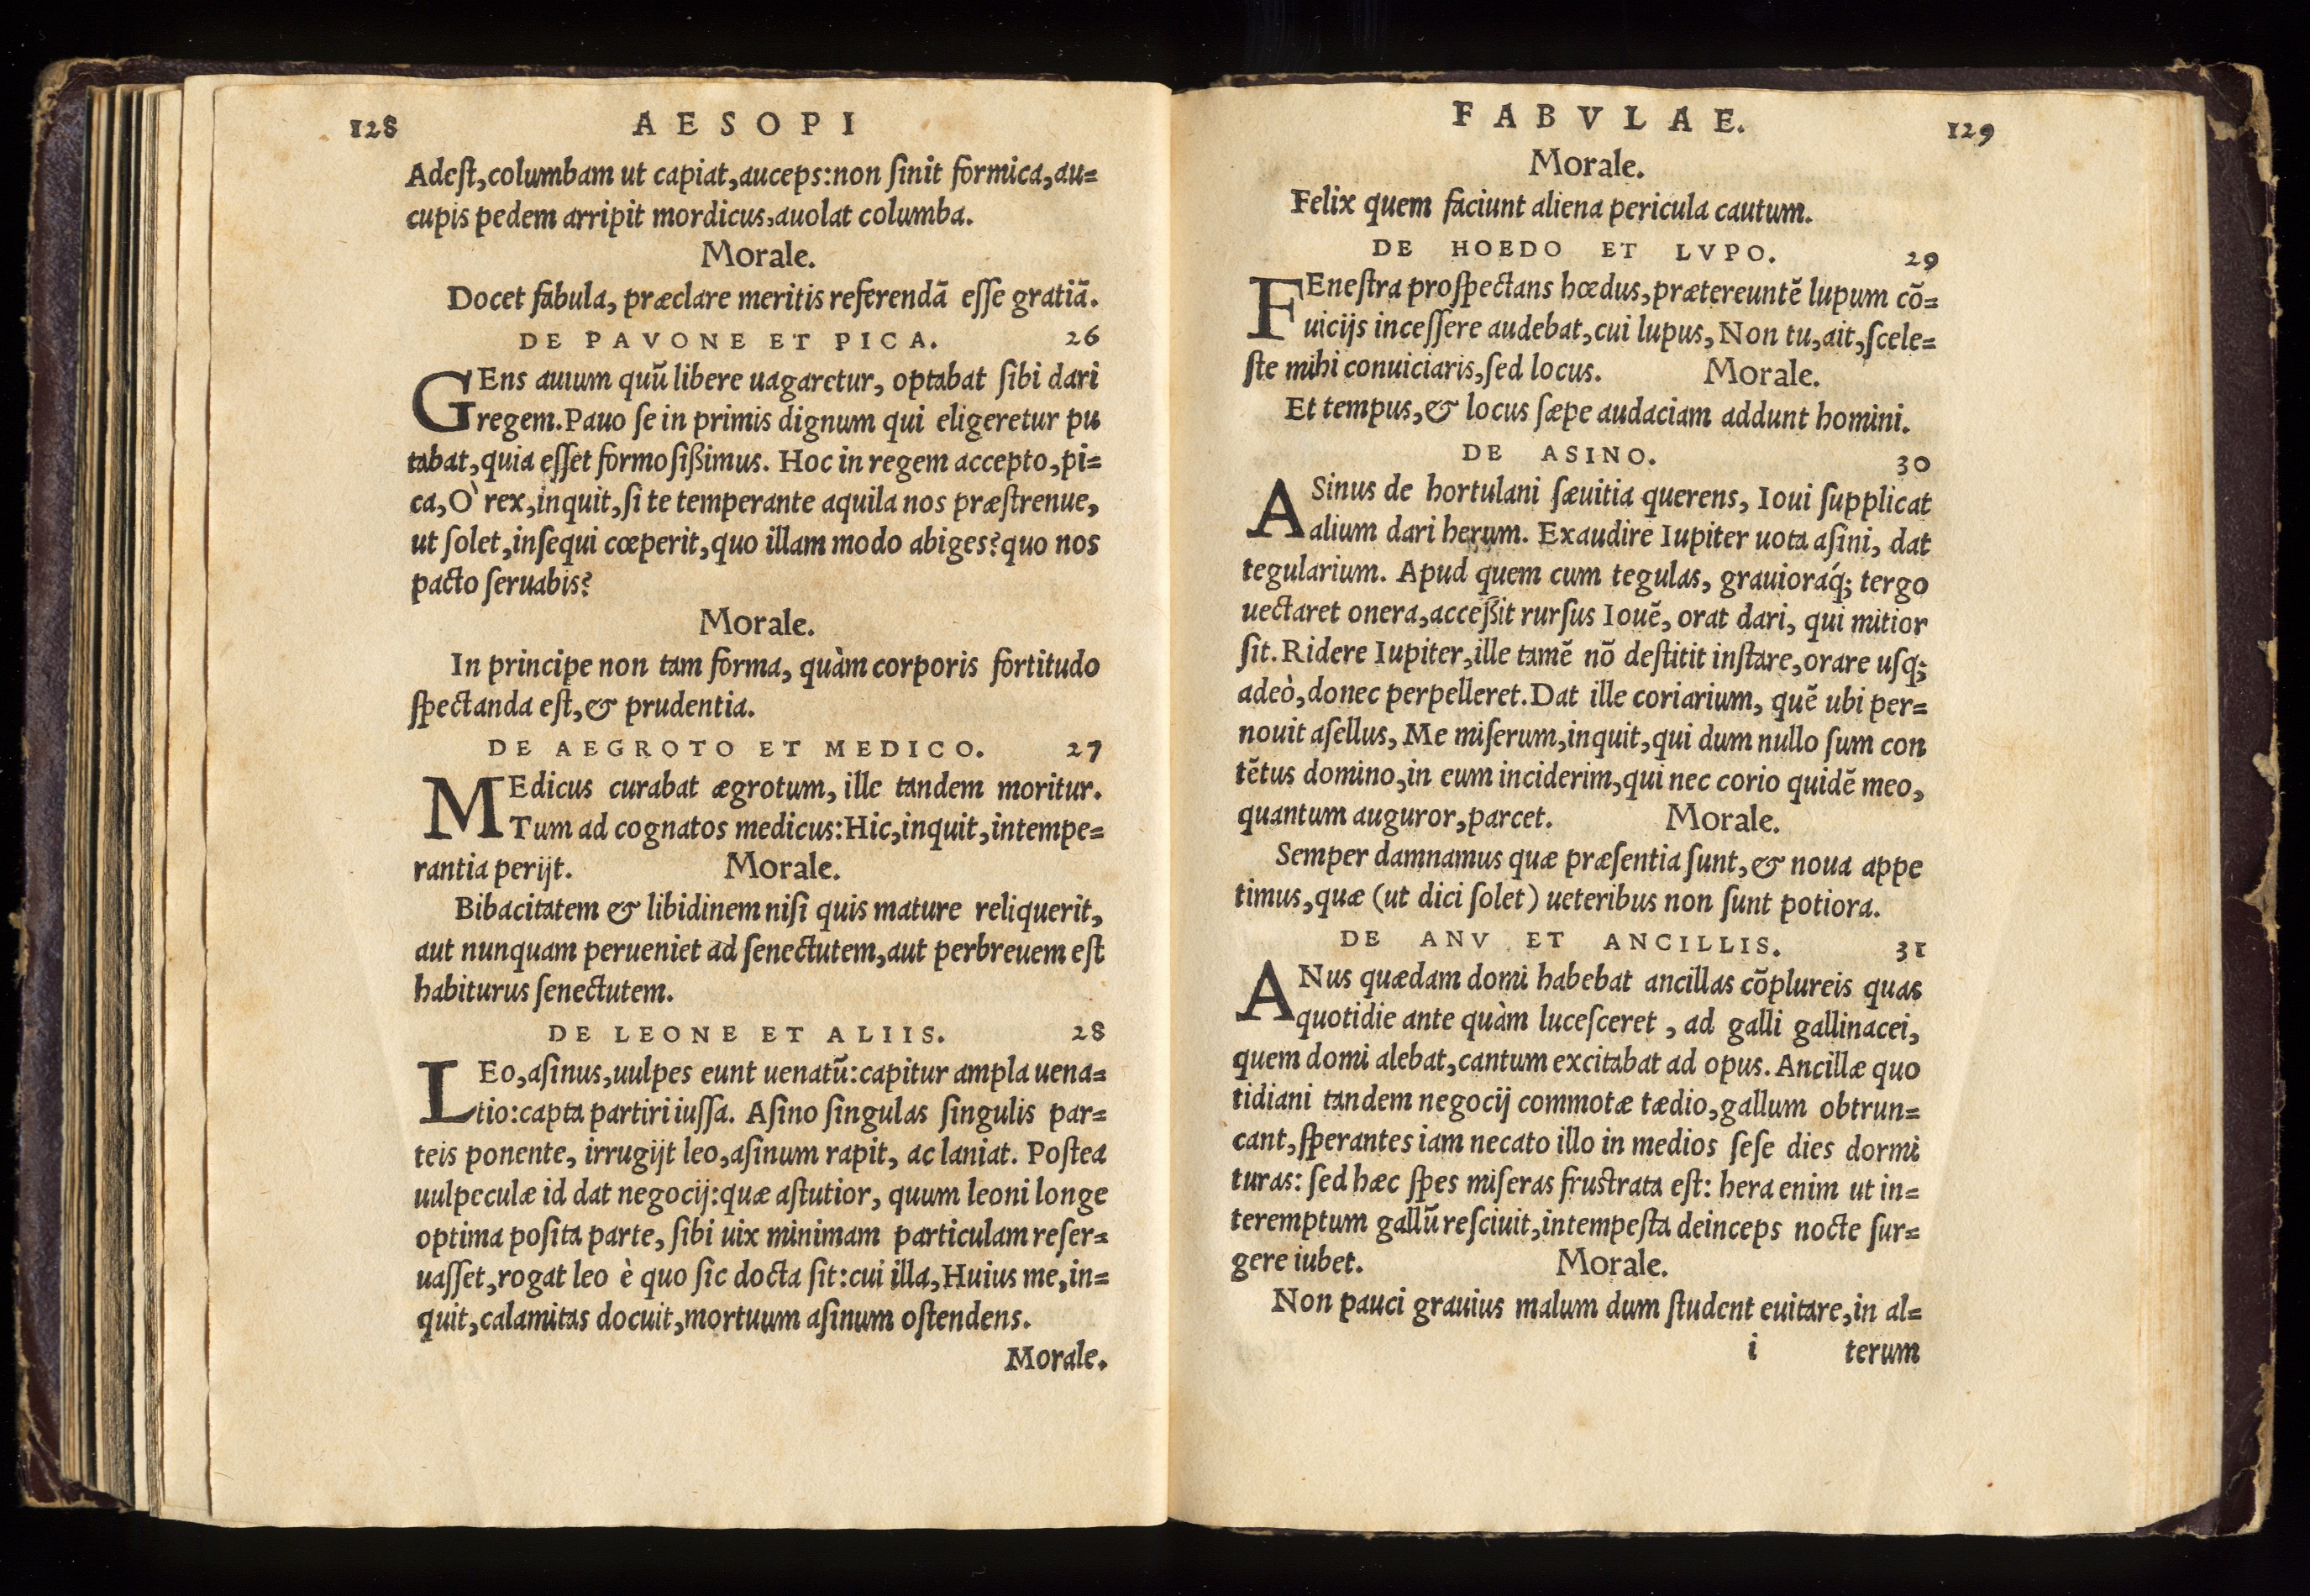 128 AESOPI
Adeſt,columbam ut capiat,auceps:non ſinit formica,au=
cupis pedem arripit mordicus,auolat columba.
Morale.
Docet fabula, præclare meritis referendā eſſe gratiā.
DE PAVONE ET PICA. 26
GEns auium quū libere uagaretur, optabat ſibi dari
regem.Pauo ſe in primis dignum qui eligeretur pu
tabat,quia eſſet formoſißimus. Hoc in regem accepto,pi=
ca,O` rex,inquit,ſi te temperante aquila nos præſtrenue,
ut ſolet,inſequi cœperit,quo illam modo abiges?quo nos
pacto ſeruabis?
Morale.
In principe non tam forma, quàm corporis fortitudo
ſpectanda eſt,& prudentia.
DE AEGROTO ET MEDICO. 27
MEdicus curabat ægrotum, ille tandem moritur.
Tum ad cognatos medicus:Hic,inquit,intempe=
rantia perijt. Morale.
Bibacitatem & libidinem niſi quis mature reliquerit,
aut nunquam perueniet ad ſenectutem,aut perbreuem eſt
habiturus ſenectutem.
DE LEONE ET ALIIS. 28
LEo,aſinus,uulpes eunt uenatū:capitur ampla uena=
tio:capta partiri iuſſa. Aſino ſingulas ſingulis par=
teis ponente, irrugijt leo,aſinum rapit, ac laniat. Poſtea
uulpeculæ id dat negocij:quæ aſtutior, quum leoni longe
optima poſita parte, ſibi uix minimam particulam reſer=
uaſſet,rogat leo è quo ſic docta ſit:cui illa,Huius me,in=
quit,calamitas docuit,mortuum aſinum oſtendens.
Morale.
FABVLAE. 129
Morale.
Felix quem faciunt aliena pericula cautum.
DE HOEDO ET LVPO. 29
FEneſtra proſpectans hœdus,prætereuntē lupum cō=
uicijs inceſſere audebat,cui lupus,Non tu,ait,ſcele=
ſte mihi conuiciaris,ſed locus. Morale.
Et tempus,& locus ſæpe audaciam addunt homini.
DE ASINO. 30
ASinus de hortulani ſæuitia querens, Ioui ſupplicat
alium dari herum. Exaudire Iupiter uota aſini, dat
tegularium. Apud quem cum tegulas, grauioraq́; tergo
uectaret onera,acceßit rurſus Iouē, orat dari, qui mitior
ſit.Ridere Iupiter,ille tamē nō deſtitit inſtare,orare uſq;
adeò,donec perpelleret.Dat ille coriarium, quē ubi per=
nouit aſellus, Me miſerum,inquit,qui dum nullo ſum con
tētus domino,in eum inciderim,qui nec corio quidē meo,
quantum auguror,parcet. Morale.
Semper damnamus quæ præſentia ſunt,& noua appe
timus,quæ (ut dici ſolet) ueteribus non ſunt potiora.
DE ANV ET ANCILLIS. 31
ANus quædam domi habebat ancillas cōplureis quas
quotidie ante quàm luceſceret , ad galli gallinacei,
quem domi alebat,cantum excitabat ad opus. Ancillæ quo
tidiani tandem negocij commotæ tædio,gallum obtrun=
cant,ſperantes iam necato illo in medios ſeſe dies dormi
turas: ſed hæc ſpes miſeras fruſtrata eſt: hera enim ut in=
teremptum gallū reſciuit,intempeſta deinceps nocte ſur=
gere iubet. Morale.
Non pauci grauius malum dum ſtudent euitare,in al=
i terum